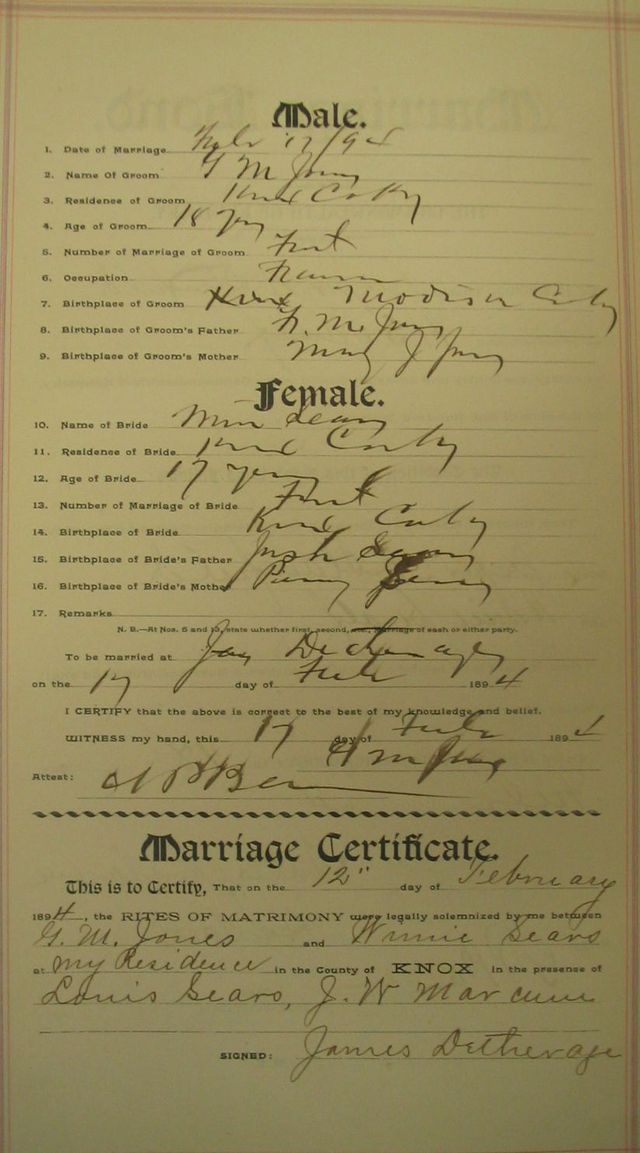 Male.
1. Date of Marriage Feb 17/94
2. Name Of Groom G M Jones
3. Residence of Groom Knox Co Ky
4. Age of Groom 18 yrs
5. Number of Marriage of Groom First
6. Occupation Farmer
7. Birthplace of Groom Knox Madison Co Ky
8. Birthplace of Groom's Father M. Jones
9. Birthplace of Groom's Mother Mary J Jones
Female.
10. Name of Bride Sears
11. Residence of Bride Knox Co Ky
12. Age of Bride 17 years
13. Number of Marriage of Bride First
14. Birthplace of Bride Knox Co Ky
15. Birthplace of Bride's Father Josh Sears
16. Birthplace of Bride's Mother Sears
17. Remarks
N. B.—At Nos. 5 and 13, state whether first, second, etc., marriage of each or either party.
To be married at Jas
on the 17 day of Feb 1894
I CERTIFY that the above is correct to the best of my knowledge and belief.
WITNESS my hand, this 17 day of Feb 1894
G M Jones
Attest:
Marriage Certificate.
This is to Certify, That on the 12" day of February
1894, the RITES OF MATRIMONY were legally solemnized by me between
G. M. Jones and Winnie Sears
at my Residence in the County of KNOX in the presence of
Louis Sears, J. W
SIGNED: James Detherage